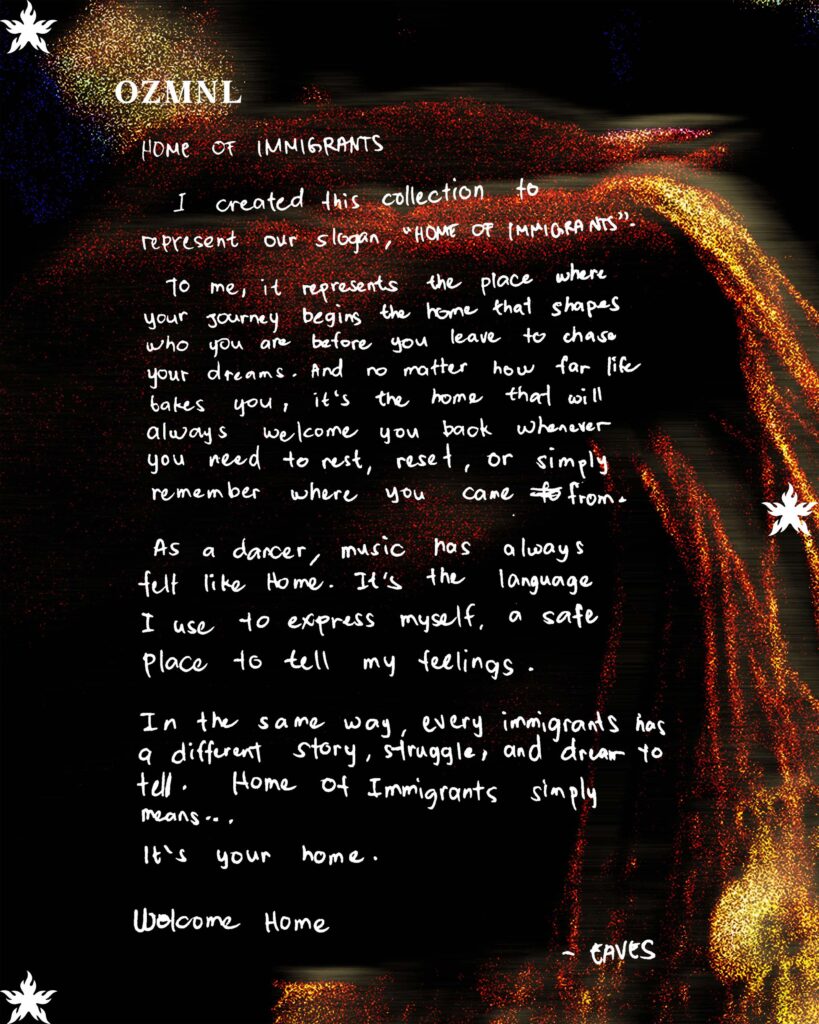 OZMNL
HOME OF IMMIGRANTS
I created this collection to
represent our slogan, "HOME OF IMMIGRANTS".
To me, it represents the place where
your journey begins the home that shapes
who you are before you leave to chase
your dreams. And no matter how far life
takes you, it's the home that will
always welcome you back whenever
you need to rest, reset, or simply
remember where you came to from.
As a dancer, music has always
felt like Home. It's the language
I use to express myself, a safe
place to tell my feelings.
In the same way, every immigrants has
a different story, struggle, and dream to
tell. Home Of Immigrants simply
means...
It's your home.
Welcome Home
- EAVES